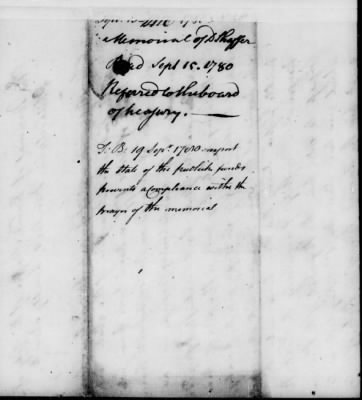 Memorial of D Shaffer
Read Sept 15. 1780
Referred to the board
of treasury. —
T. B. 19 Sept. 1780 report
the State of the publick funds
prevents a compliance with the
prayer of the memorial